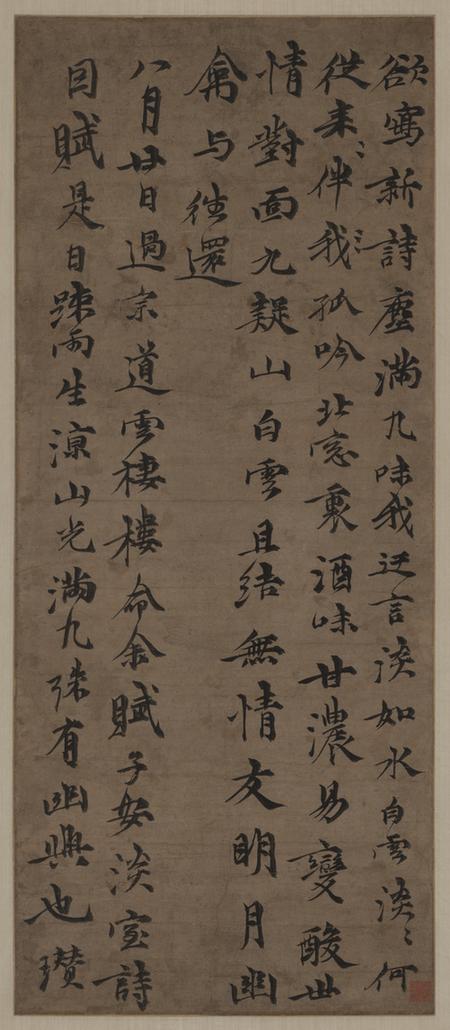 欲寫新詩塵滿几味我迂言淡如水白雲淡〻何
從来伴我孤吟北窓裏酒味甘濃易變酸世
情對面九疑山白雲且結無情友明月幽
禽与徃還
八月廿日過宗道雲棲樓命余賦子安淡室詩
因賦是日踈雨生涼山光滿几殊有幽興也瓚